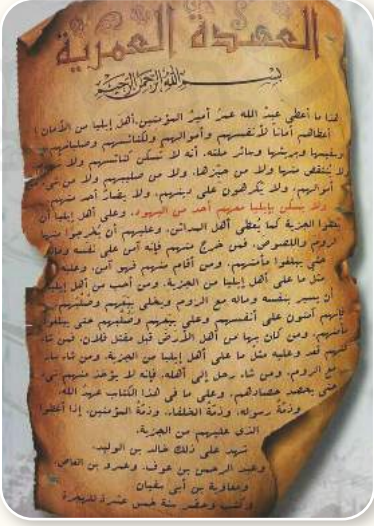 العهدة العمرية
بسم الله الرحمن الرحيم
هذا ما أعطى عبد الله عمر أمير المؤمنين، أهل إيليا من الأمان:
أعطاهم أماناً لأنفسهم وأموالهم ولكنائسهم وصلبانهم
وسقيمها وبريئها وسائر ملتها. أنه لا تسكن كنائسهم ولا
ولا ينتقص منها ولا من حيزها، ولا من صليبهم ولا من شيء
أموالهم، ولا يكرهون على دينهم، ولا يضار أحد منهم
ولا يسكن بإيليا معهم أحد من اليهود، وعلى أهل إيليا أن
يعطوا الجزية كما يعطي أهل المدائن، وعليهم أن يخرجوا منها
الروم واللصوص، فمن خرج منهم فإنه آمن على نفسه وماله
حتى يبلغوا مأمنهم، ومن أقام منهم فهو آمن، وعليه
مثل ما على أهل إيليا من الجزية، ومن أحب من أهل إيليا
أن يسير بنفسه وماله مع الروم ويخلي بيعهم وصلبهم
فإنهم آمنون على أنفسهم وعلى بيعهم وصلبهم حتى يبلغوا
مأمنهم، ومن كان بها من أهل الأرض قبل مقتل فلان، فمن شاء
منهم قعد وعليه مثل ما على أهل إيليا من الجزية، ومن شاء سار
مع الروم، ومن شاء رجل إلى أهله، فإنه لا يؤخذ منهم شيء
حتى يحصد حصادهم، وعلى ما في هذا الكتاب عهد الله،
وذمة رسوله، وذمة الخلفاء، وذمة المؤمنين، إذا أعطوا
الذي عليهم من الجزية.
شهد على ذلك خالد بن الوليد،
وعبد الرحمن بن عوف، وعمرو بن العاص،
ومعاوية بن أبي سفيان
وكتب وحضر سنة خمس عشرة للهجرة